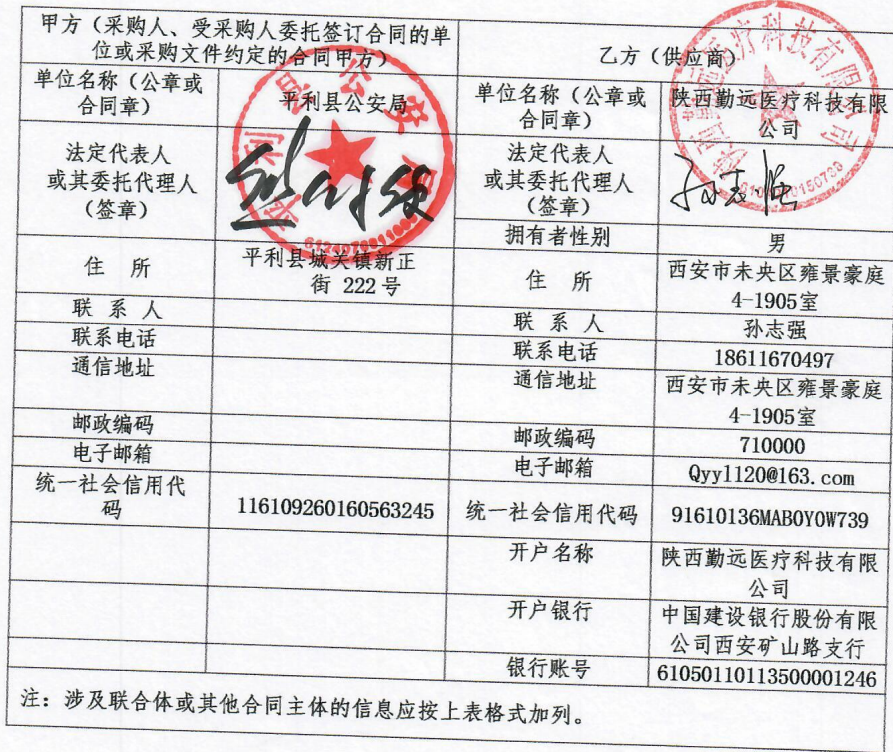 甲方（采购人、受采购人委托签订合同的单
位或采购文件约定的合同甲方）
乙方（供应商）
单位名称（公章或
合同章）
平利县公安局
单位名称（公章或
合同章）
陕西勤远医疗科技有限
公司
法定代表人
或其委托代理人
（签章）
法定代表人
或其委托代理人
（签章）
孙志强
拥有者性别
男
住 所
平利县城关镇新正
街 222 号
住 所
西安市未央区雍景豪庭
4-1905室
联 系 人
联 系 人
孙志强
联系电话
联系电话
18611670497
通信地址
通信地址
西安市未央区雍景豪庭
4-1905室
邮政编码
邮政编码
710000
电子邮箱
电子邮箱
Qyyl120@163.com
统一社会信用代
码
116109260160563245
统一社会信用代码
91610136MAB0Y0W739
开户名称
陕西勤远医疗科技有限
公司
开户银行
中国建设银行股份有限
公司西安矿山路支行
银行账号
61050110113500001246
注：涉及联合体或其他合同主体的信息应按上表格式加列。
平利县公安局
陕西勤远医疗科技有限公司